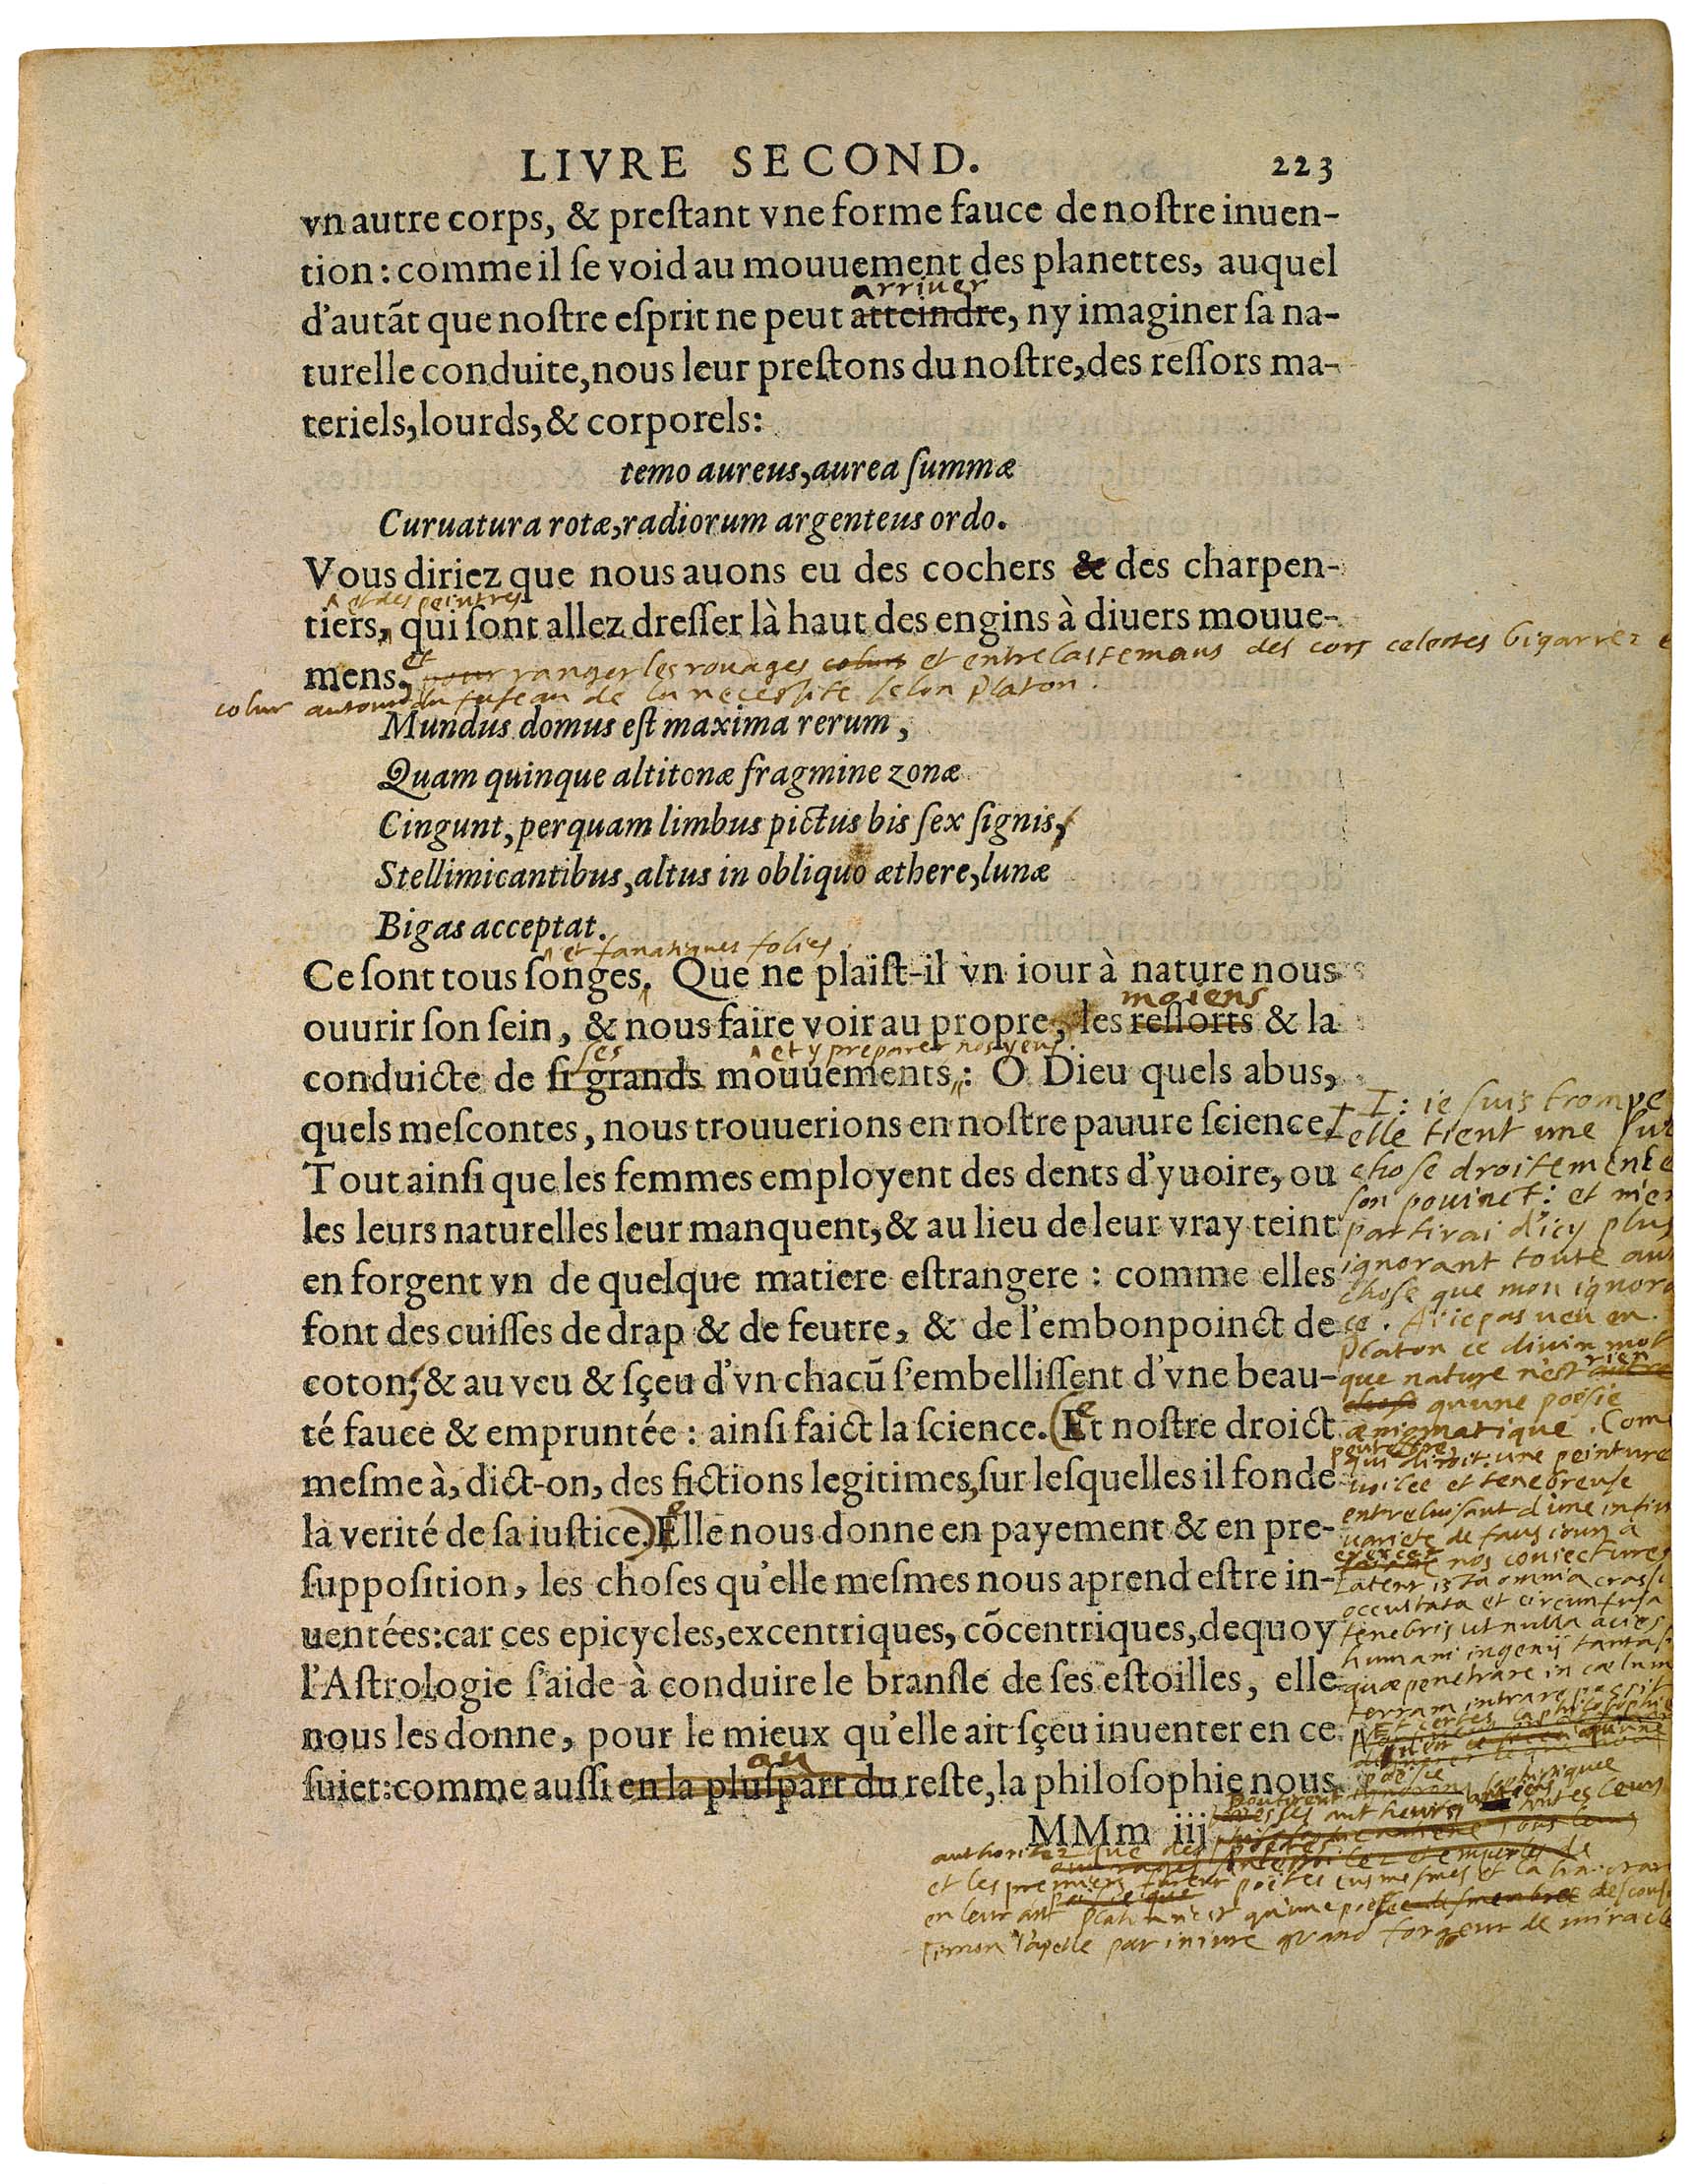 LIVRE SECOND. 223
vn autre corps, & preſtant vne forme fauce de noſtre inuen-
tion : comme il ſe void au mouuement des planettes, auquel
arriuer
d'autãt que noſtre eſprit ne peut atteindre, ny imaginer ſa na-
turelle conduite, nous leur preſtons du noſtre, des reſſors ma-
teriels, lourds, & corporels :
temo aureus, aurea ſummæ
Curuatura rotæ, radiorum argenteus ordo.
Vous diriez que nous auons eu des cochers & des charpen-
et des peintres
tiers, qui ſont allez dreſſer là haut des engins à diuers mouue-
mens, et pour ranger les rouages et entrelassemans des cors celestes bigarrez e
colur autour du fuseau de la necessite selon Platon.
Mundus domus eſt maxima rerum,
Quam quinque altitonæ fragmine zonæ
Cingunt, per quam limbus pictus bis ſex ſignis,
Stellimicantibus, altus in obliquo æthere, lunæ
Bigas acceptat.
et fanatiques folies
Ce ſont tous ſonges. Que ne plaiſt-il vn iour à nature nous
moiens
ouurir ſon ſein, & nous faire voir au propre, les reſſorts & la
ses et y preparer nos yeus
conduicte de ſi grands mouuements : O Dieu quels abus,
quels meſcontes, nous trouuerions en noſtre pauure ſcience
Tout ainſi que les femmes employent des dents d'yuoire, ou
les leurs naturelles leur manquent, & au lieu de leur vray teint
en forgent vn de quelque matiere eſtrangere : comme elles
font des cuiſſes de drap & de feutre, & de l'embonpoinct de
coton, & au veu & ſçeu d'vn chacũ ſ'embelliſſent d'vne beau-
té fauce & empruntée : ainſi faict la ſcience. (Et e noſtre droict
meſme à, dict-on, des fictions legitimes, ſur leſquelles il fonde
la verité de ſa iuſtice.) Elle e nous donne en payement & en pre-
ſuppoſition, les choſes qu'elle meſmes nous aprend eſtre in-
uentées : car ces epicycles, excentriques, cõcentriques, dequoy
l'Aſtrologie ſ'aide à conduire le branſle de ſes eſtoilles, elle
nous les donne, pour le mieux qu'elle ait ſçeu inuenter en ce
au
ſuiet : comme auſſi en la pluſpart du reſte, la philoſophie nous
MMm iij
I : ie suis trompe
elle tient une sur
chose droitement e
son pouinct : et m'en
partirai d'icy plus
ignorant toute aut
chose que mon ignora
ce. Ai ie pas veu en
Platon ce divin mot
que nature n'est rien
qu'une poësie
ænigmatique. Com
peutestre
qui diroit une peinture
voilee et tenebreuse
entreluisant d'une infin
varieté de faus iours a
exercer nos coniectures
Latent ista omnia crassi
occultata et circunfusa
tenebris ut nulla acies
humani ingenij tanta s
quæ penetrare in cælum
terram intrare possit
Et certes la philosophie
n'est qu'une
poësie sophistique
les autheurs antiens toutes leurs
authoritez que des poetes
et les premiers furent poëtes eus mesmes et la
en leur art Platon n'est qu'un poete descous
Timon l'apelle par iniure grand forgeur de miracle